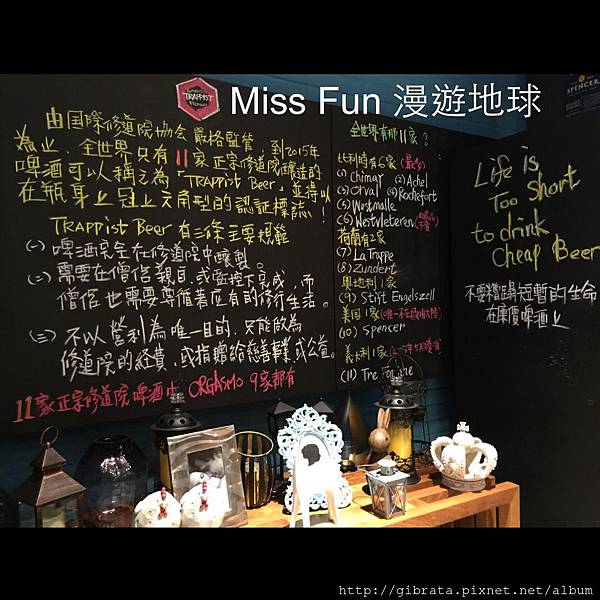 TRAPPIST
Miss Fun 漫遊地球
SPENCER
由国際修道院协会嚴格監管,到2015年
為止,全世界只有11家正宗修道院釀造的
啤酒可以稱之為「TRAPPIST Beer」並得以
在瓶身上冠上六角型的認証標誌!
TRAPPist Beer有三條主要規範
(一) 啤酒完全在修道院中釀製。
(二) 需要在僧侶親自或監控下完成,而
僧侶也需要遵循著应有的修行生活。
(三) 不以營利為唯一目的,只能做為
修道院的經費,或捐贈給慈善事業或公益。
11家正宗修道院啤酒中 ORGASMO 9家都有
全世界有那11家?
比利時有6家(最多)
(1) Chimay (2) Achel
(3) Orval (4) Rochefort
(5) Westmalle
(6) Westvleteren
荷蘭有2家
(7) La Trappe
(8) Zundert
奧地利1家
(9) Stift Engelszell
美国1家(唯一不在歐洲大陸)
(10) Spencer
義大利1家
(11) Tre Fontane
Life is
Too Short
to drink
Cheap Beer
不要糟蹋短暫的生命
在廉價啤酒上
http://gibrata.pixnet.net/album